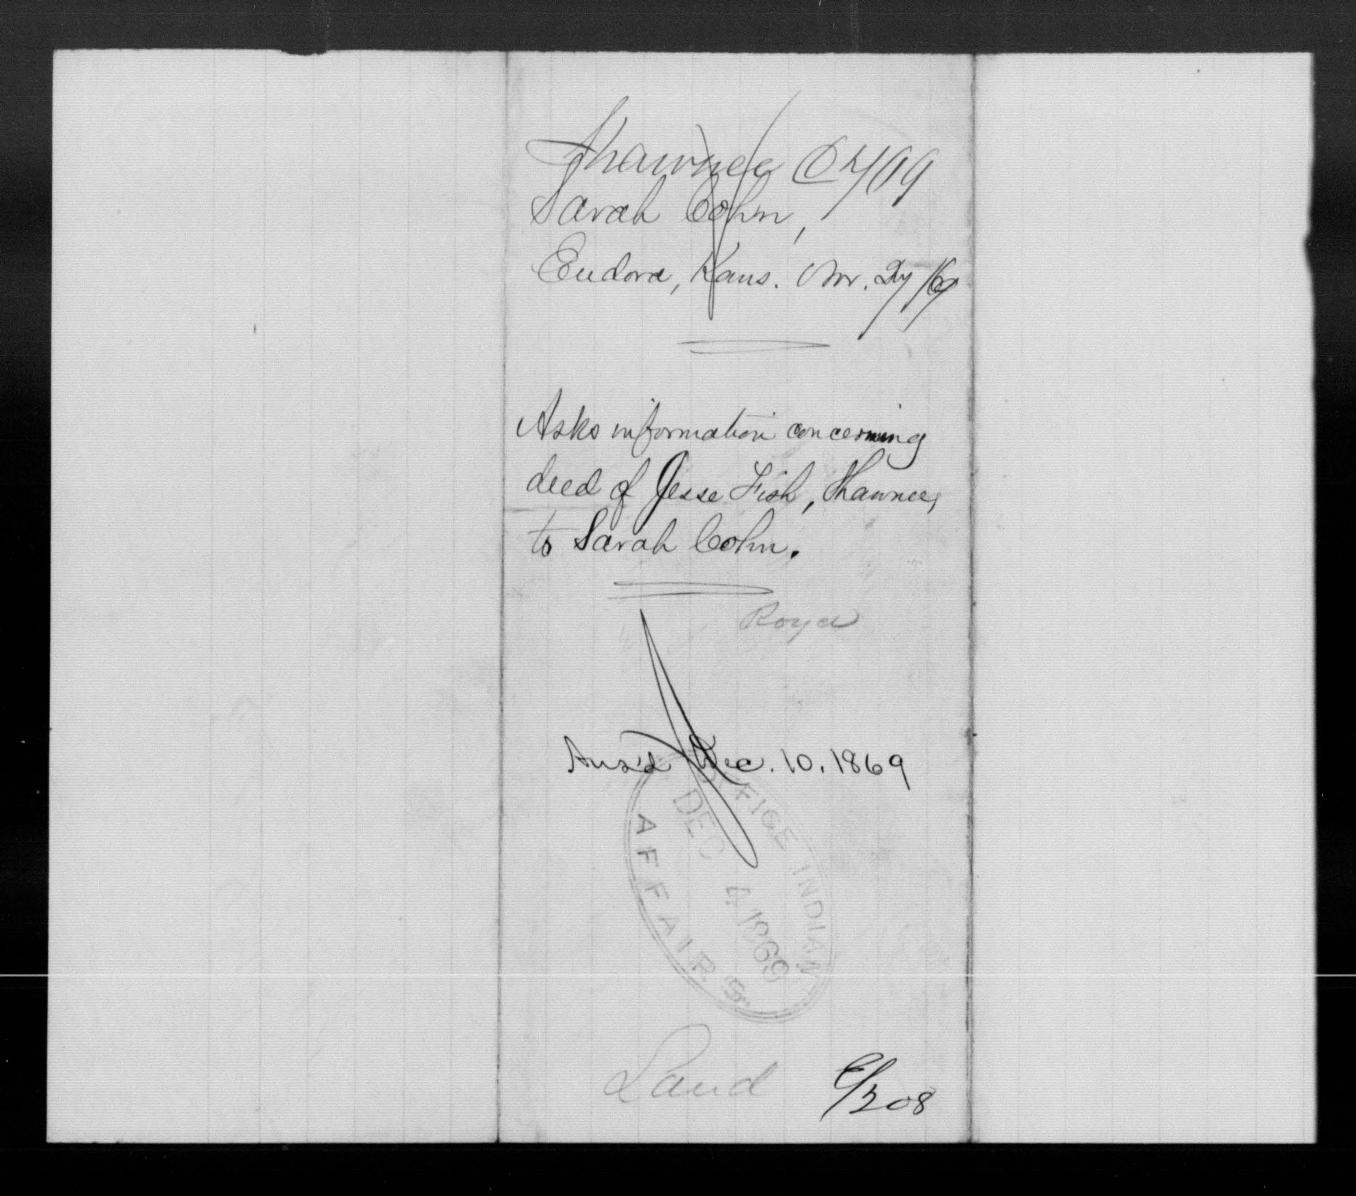 Shawnee C
Sarah Cohn,
Eudora, Kans. Nov. 27/69
Asks information concerning
deed of Jesse Fish, Shawnee,
to Sarah Cohn.
Ans'd Dec. 10, 1869
OFFICE INDIAN
DEC 4 1869
AFFAIRS
Land